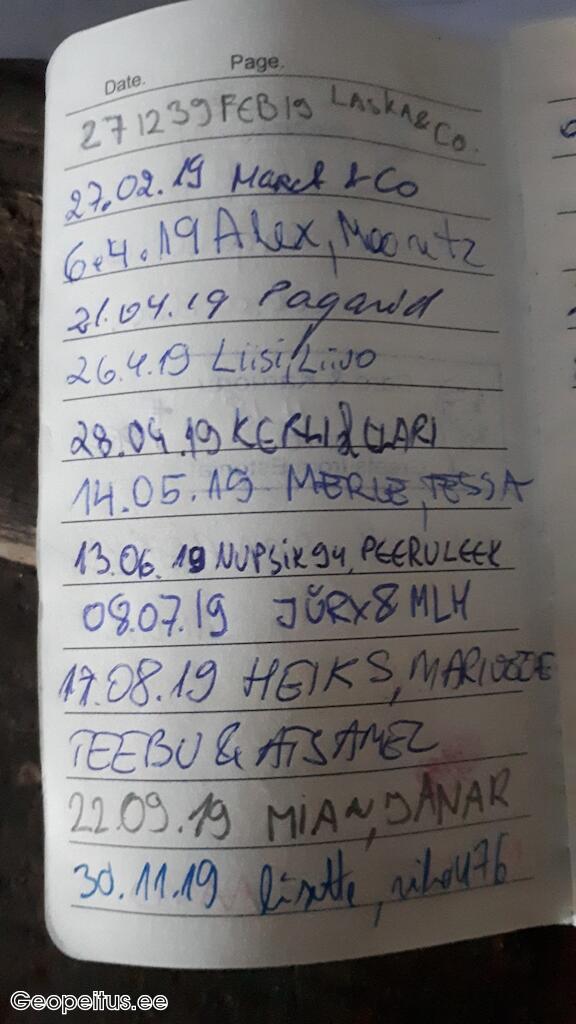 Date. Page.
271239FEB19 LASKA&Co.
27.02.19 Marek & Co
6.4.19 Alex, Mooritz
21.04.19 Pagarid
26.4.19 Liisi, Liivo
28.04.19 KERLI & CLARI
14.05.19 MERLE, TESSA
13.06.19 NUPSIK94, PEERULEEK
08.07.19 JÜRX & MLH
17.08.19 HEIKS,
TEEBU & ATSAMEZ
22.09.19 MIAN, JANAR
30.11.19 Lisette, riho476
Geopeitus.ee